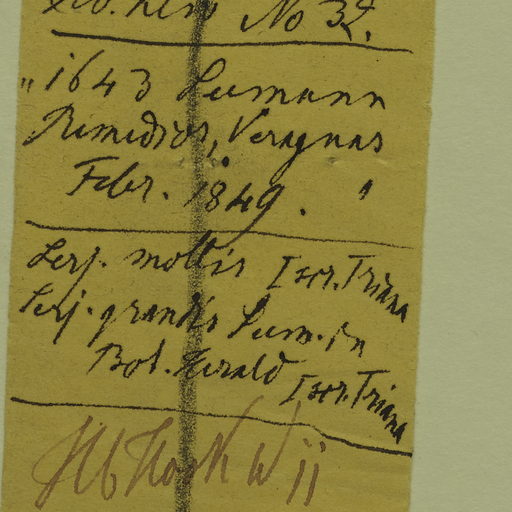 No 32.
"1643 Seemann
Remedios, Veraguas
Febr. 1849. "
Serj. mollis Iscr. Triana
Serj. grandis Seem. in
Bot. Herald Iscr. Triana